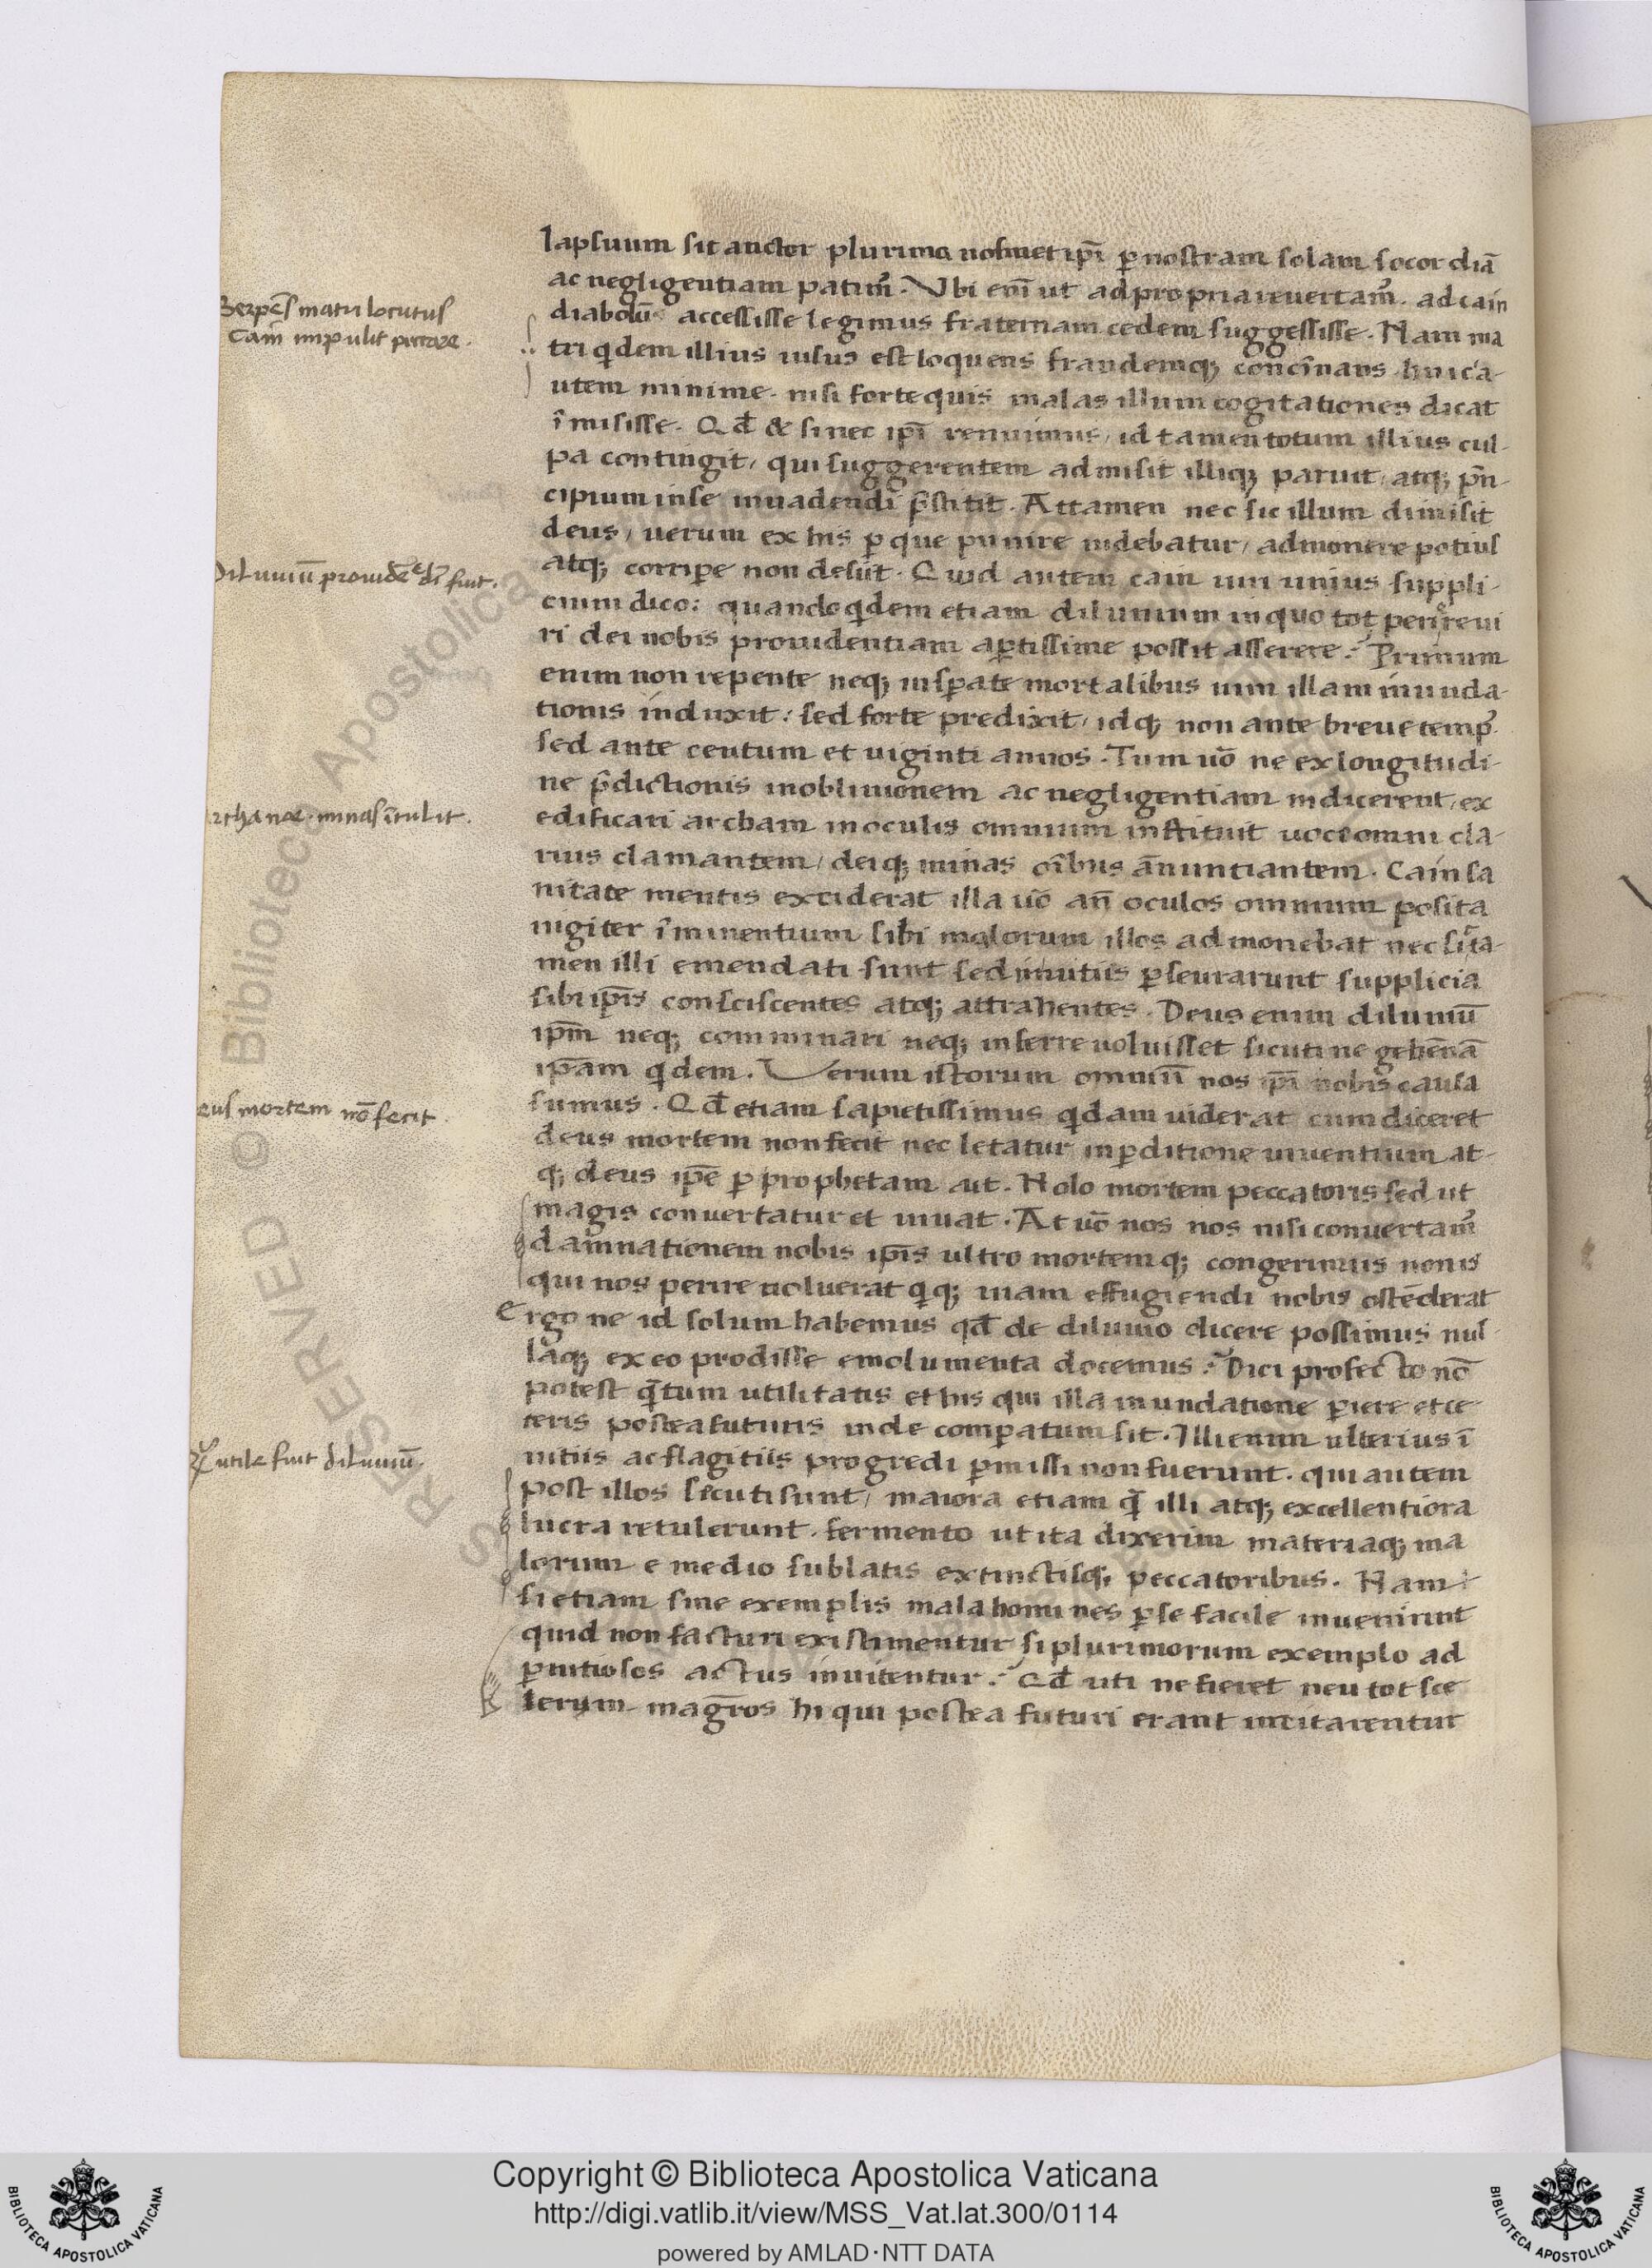 Serpēs matri locutus
Cain impulit peccare.
Diluuiū prouidē dī fuit.
archa noe minas ītulit.
eus mortem nō fecit.
utile fuit diluuiū.
lapsuum sit auctor plurima nosmet ipī ꝑ nostram solam socordiā
ac negligentiam patimꝰ. Vbi enī ut ad propria reuertamꝰ. ad cain
diabolū accessisse legimus fraternam cedem suggessisse. Nam ma
tri qͥdem illius uisus est loquens fraudemqꝫ concīnans huic a-
utem minime. nisi forte quis malas illum cogitationes dicat
īmisisse. Qđ & si nec ipī renuimus, id tamen totum illius cul-
pa contingit, qui suggerentem admisit illiqꝫ paruit, atqꝫ pͥn-
cipium in se inuadendi p̄stitit. Attamen nec sic illum dimisit
deus, uerum ex his ꝑ que punire uidebatur, admonere potius
atqꝫ corriꝑe non desiit. Quid autem cain uni unius suppli-
cium dico: quando qͥdem etiam diluuium in quo tot
ri dei nobis prouidentiam aꝑtissime possit asserere? Primum
enim non repente neqꝫ insꝑate mortalibus uim illam inunda-
tionis induxit: sed forte predixit, idqꝫ non ante breue tempꝰ.
sed ante centum et uiginti annos. Tum uō ne ex longitudi-
ne p̄dictionis in obliuionem ac negligentiam indicerent, ex
edificari archam in oculis omnium instituit uoce omni cla-
rius clamantem, deiqꝫ minas oībus ānuntiantem. Cain sa
nitate mentis exciderat illa uō an̄ oculos omnium posita
iugiter īminentium sibi malorum illos admonebat nec sic ta-
men illi emendati sunt sed in uitiis ꝑseurarunt supplicia
sibi ipīs consciscentes atqꝫ attrahentes. Deus enim diluuiū
ipm̄ neqꝫ comminari neqꝫ inferre uoluisset sicuti ne gehēnā
ipam̄ qͥdem. Verum istorum omniū nos ipī nobis causa
sumus. Qđ etiam sapiētissimus qͥdam uiderat cum diceret
deus mortem non fecit nec letatur in ꝑditione uiuentium at-
qꝫ deus ipē ꝑ prophetam ait. Nolo mortem peccatoris sed ut
magis conuertatur et uiuat. At uō nos nos nisi conuertamꝰ
damnationem nobis ipīs ultro mortemqꝫ congerimus non is
qui nos perire noluerat qͥqꝫ uiam effugiendi nobis ostēderat
Ergo ne id solum habemus qđ de diluuio dicere possimus nul-
laqꝫ ex eo prodisse emolumenta docemus? Dici profecto nō
potest qͣtum utilitatis et his qui illa inundatione ꝑiere et ce
teris postea futuris inde comꝑatum sit. Illi enim ulterius ī
uitiis ac flagitiis progredi ꝑmissi non fuerunt. qui autem
post illos secuti sunt, maiora etiam qͣ̄ illi atqꝫ excellentiora
lucra retulerunt. fermento ut ita dixerim materiaqꝫ ma
lorum e medio sublatis extinctisqꝫ peccatoribus. Nam
si etiam sine exemplis mala homines ꝑ se facile inuenirint
quid non facturi existimentur si plurimorum exemplo ad
ꝑnitiosos actus inuitentur? Qđ uti ne fieret neu tot sce
lerum magr̄os hi qui postea futuri erant imitarentur
Copyright © Biblioteca Apostolica Vaticana
http://digi.vatlib.it/view/MSS_Vat.lat.300/0114
powered by AMLAD·NTT DATA